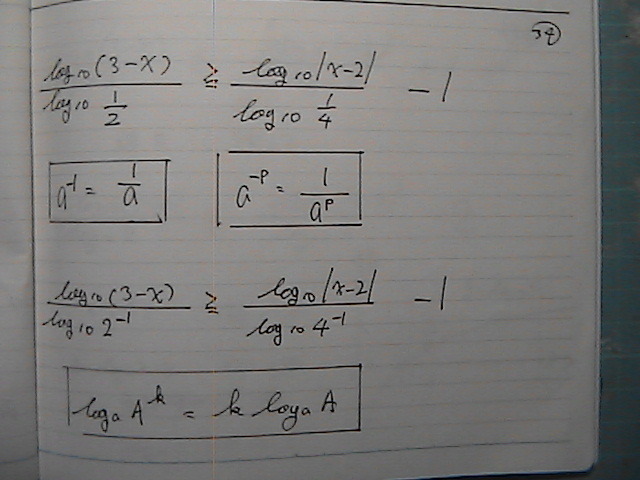 34
log₁₀(3-x) / log₁₀ 1/2 ≧ log₁₀|x-2| / log₁₀ 1/4 - 1
a⁻¹ = 1/a    a⁻ᵖ = 1/aᵖ
log₁₀(3-x) / log₁₀ 2⁻¹ ≧ log₁₀|x-2| / log₁₀ 4⁻¹ - 1
logₐ Aᵏ = k logₐ A